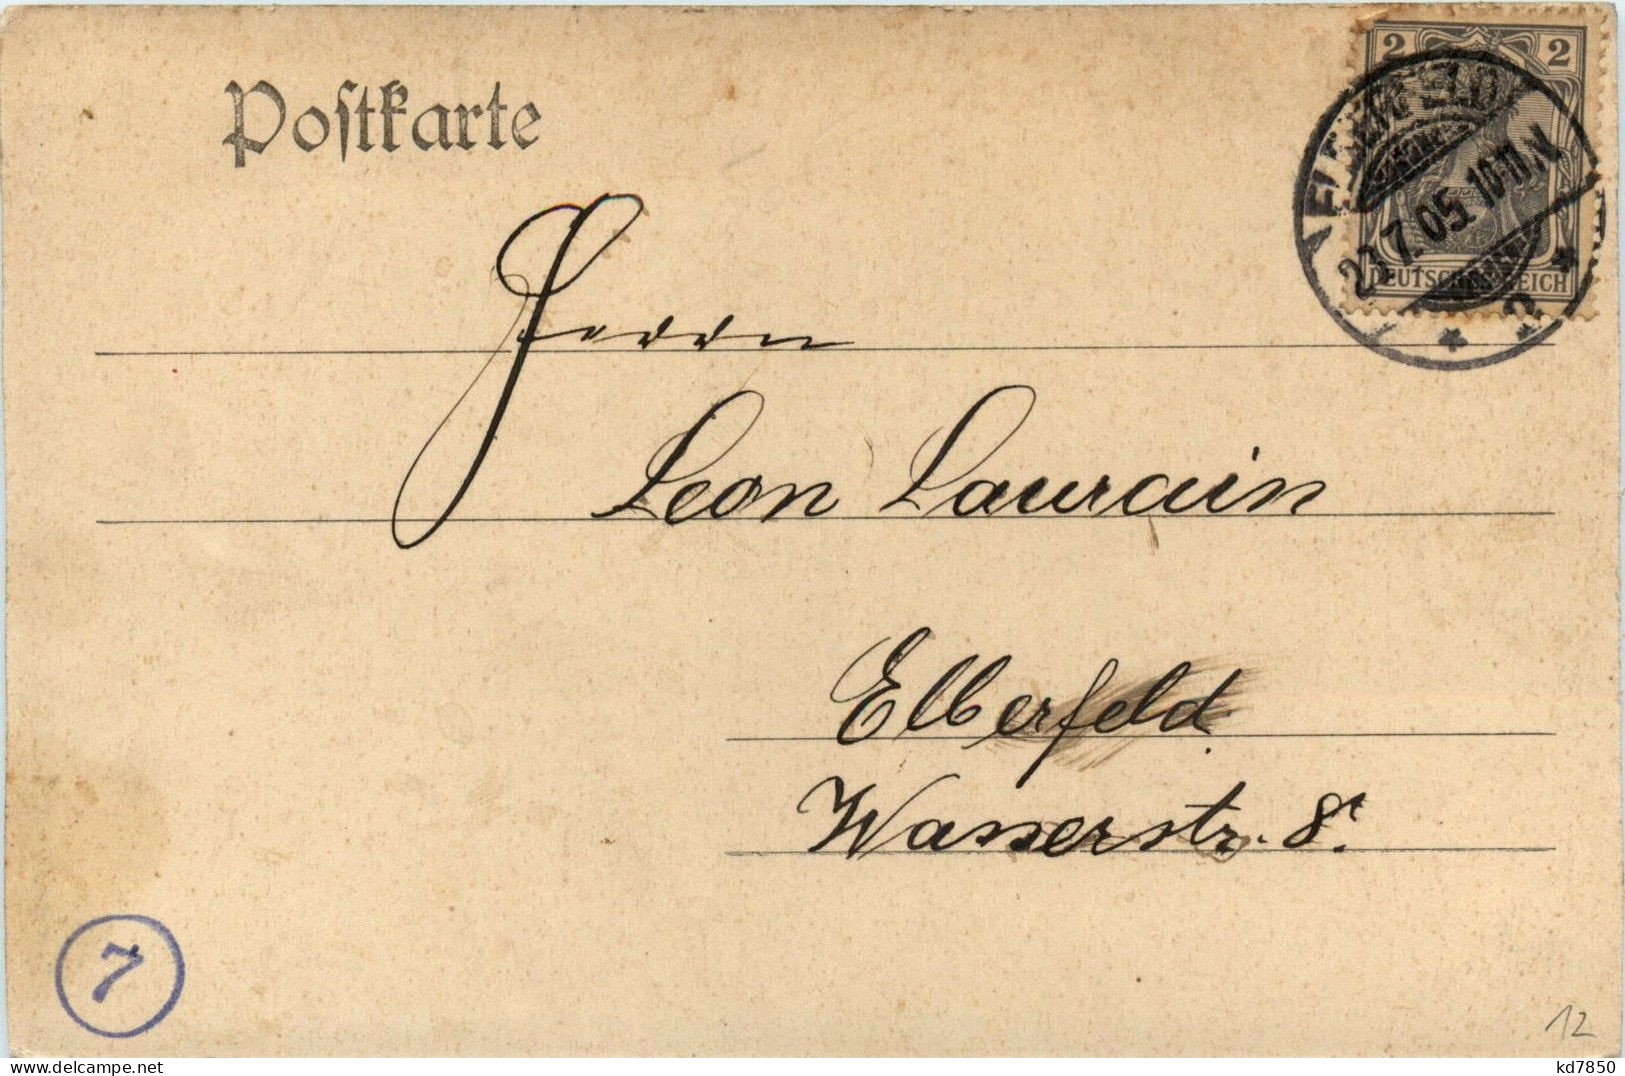 Postkarte
2 2
ELBERFELD
23.7.05. 10-11.N
* 2 *
DEUTSCHES REICH
Herrn
Leon Laurain
Elberfeld
Wasserstr. 8.
7
12
kd7850